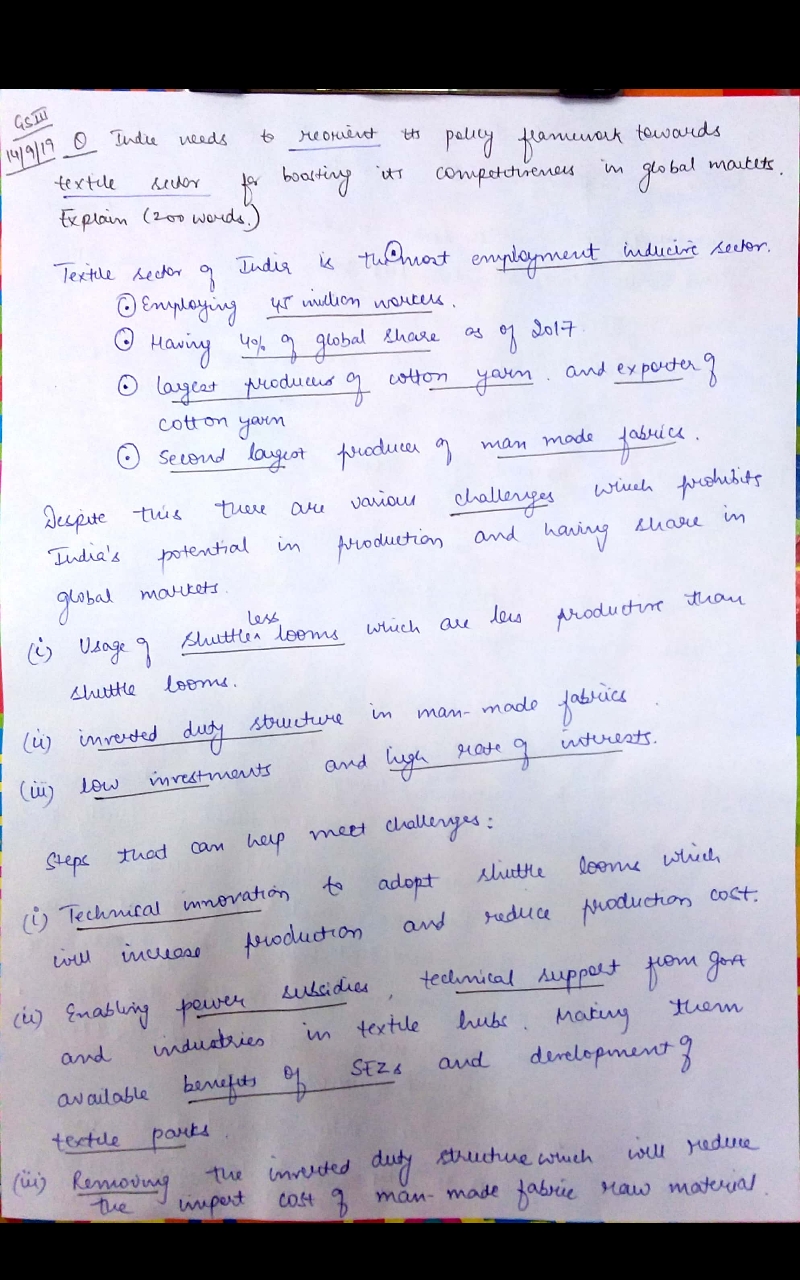 GS III
14/9/19
Q India needs to reorient its policy framework towards
textile sector for boosting its competitiveness in global markets.
Explain (200 words.)
Textile sector of India is the most employment inducive sector.
Employing 45 million workers.
Having 4% of global share as of 2017
largest producer of cotton yarn. and exporter of
cotton yarn
Second largest producer of man made fabrics.
Despite this there are various challenges which prohibits
India's potential in production and having share in
global markets.
less
(i) Usage of shuttle looms which are less productive than
shuttle looms.
(ii) inverted duty structure in man-made fabrics.
(iii) low investments and high rate of interests.
Steps that can help meet challenges:
(i) Technical innovation to adopt shuttle looms which
will increase production and reduce production cost.
(ii) Enabling power subsidies, technical support from govt
and industries in textile hubs. Making them
available benefits of SEZs and development of
textile parks.
(iii) Removing the inverted duty structure which will reduce
the import cost of man-made fabric raw material.